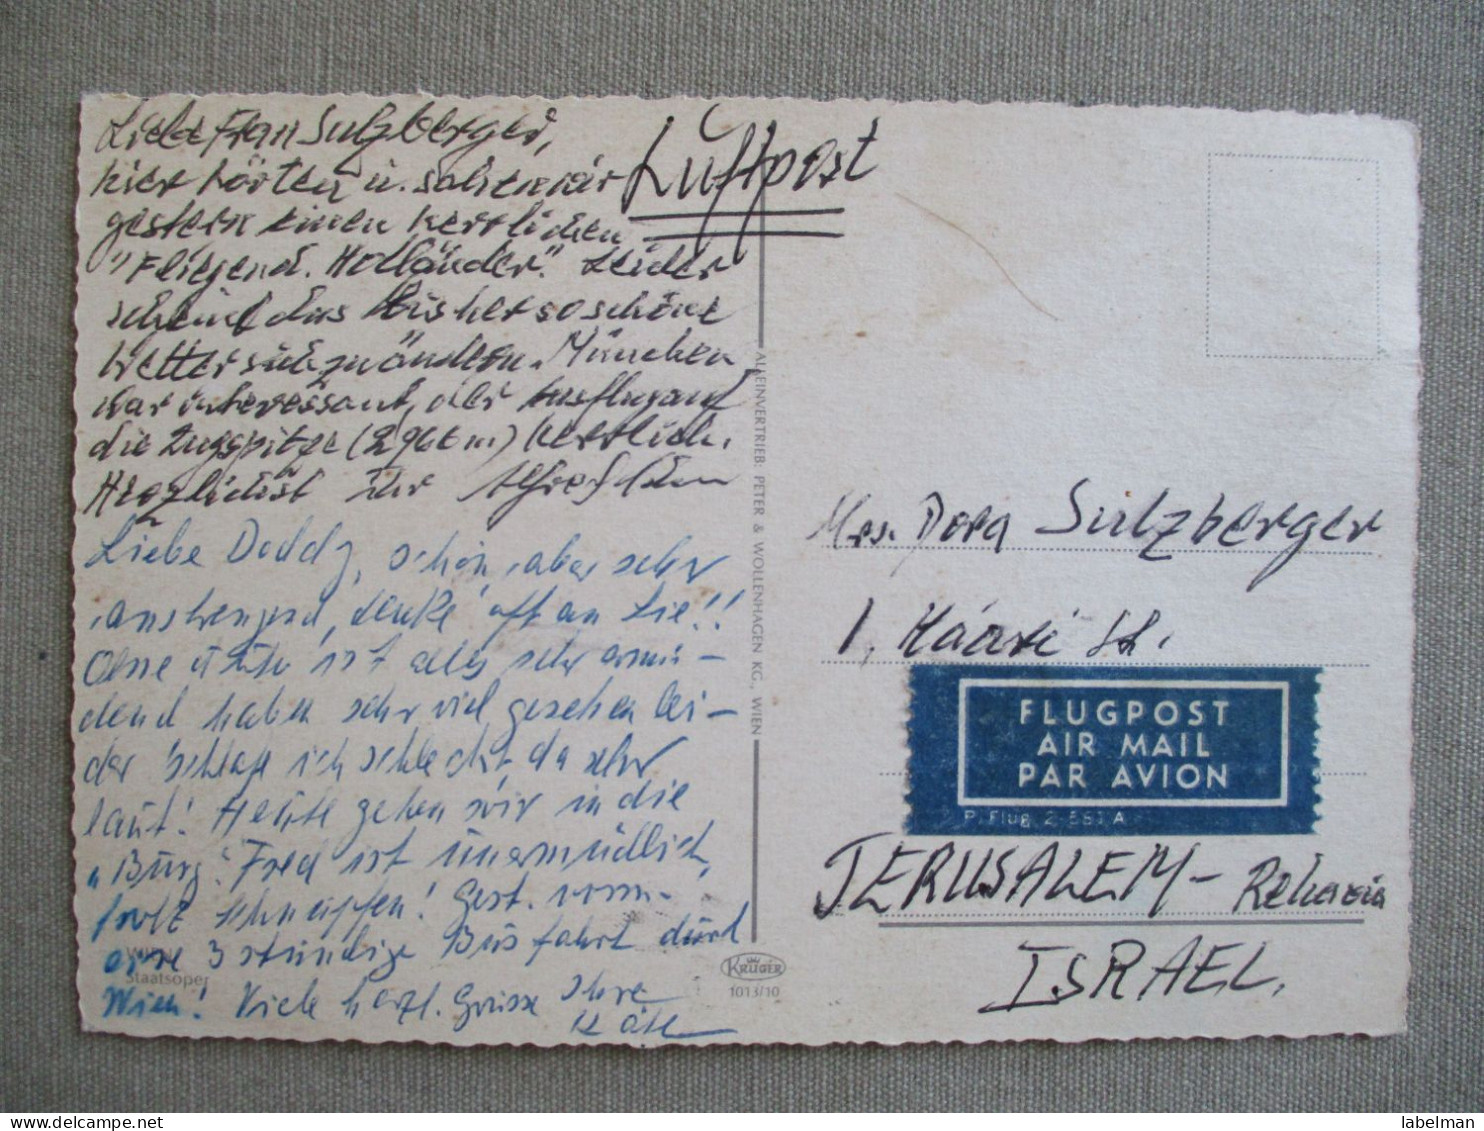 Liebe Frau Sulzberger,
hier hörten u. sahen wir
gestern einen herrlichen
"Fliegend. Holländer." Leider
scheint das bisher so schöne
Wetter sich zu ändern. München
war interessant, der Ausflug auf
die Zugspitze (2966 m) herrlich.
Herzlichst Ihr Alfred
Liebe Doddy, schön, aber sehr
anstrengend, denke oft an Sie!!
Ohne ist alles sehr ermü-
dend haben sehr viel gesehen lei-
der schlafe ich schlecht da sehr
laut! Heute gehen wir in die
"Burg". Fred ist unermüdlich,
trotz Schnupfen! Gest. vorm.
3 stündige Bus fahrt durch
Wien! Viele herzl. Grüsse Ihre
Käte
WIEN
Staatsoper
ALLEINVERTRIEB: PETER & WOLLENHAGEN KG., WIEN
KRÜGER
1013/10
Luftpost
Mrs. Dora Sulzberger
1, Haari St.
FLUGPOST
AIR MAIL
PAR AVION
P. Flug 2 551 A
JERUSALEM - Rehavia
ISRAEL.
labelman
www.delcampe.net